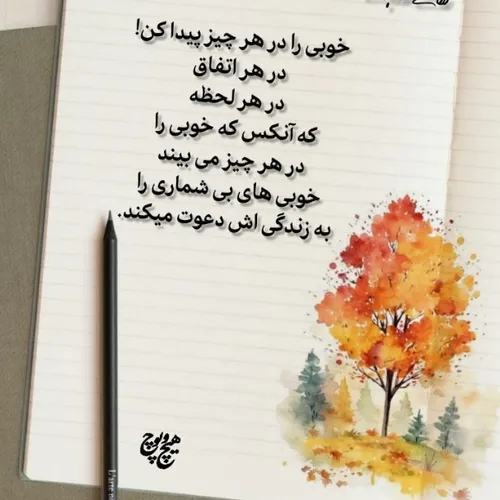 خوبی را در هر چیز پیدا کن!
در هر اتفاق
در هر لحظه
که آنکس که خوبی را
در هر چیز می بیند
خوبی های بی شماری را
به زندگی اش دعوت میکند.
هیچ و پوچ